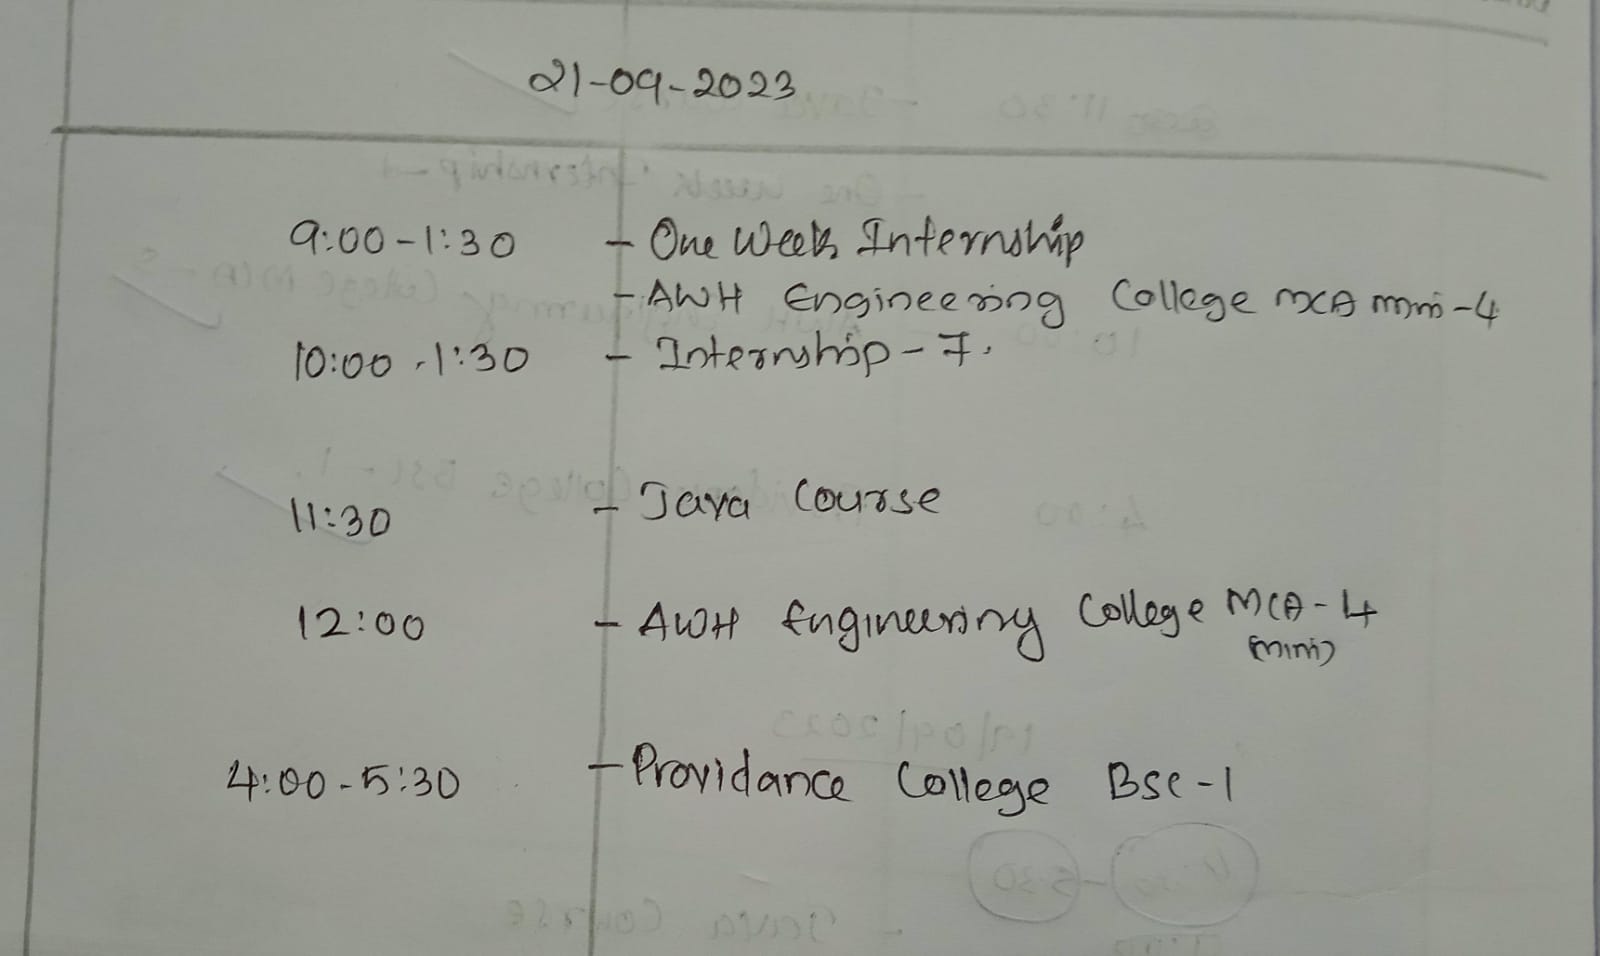 21-09-2023
9:00-1:30 - One Week Internship
- AWH Engineering College MCA mini-4
10:00-1:30 - Internship-7.
11:30 - Java Course
12:00 - AWH Engineering College MCA-4
(mini)
4:00-5:30 - Providance College BSC-1